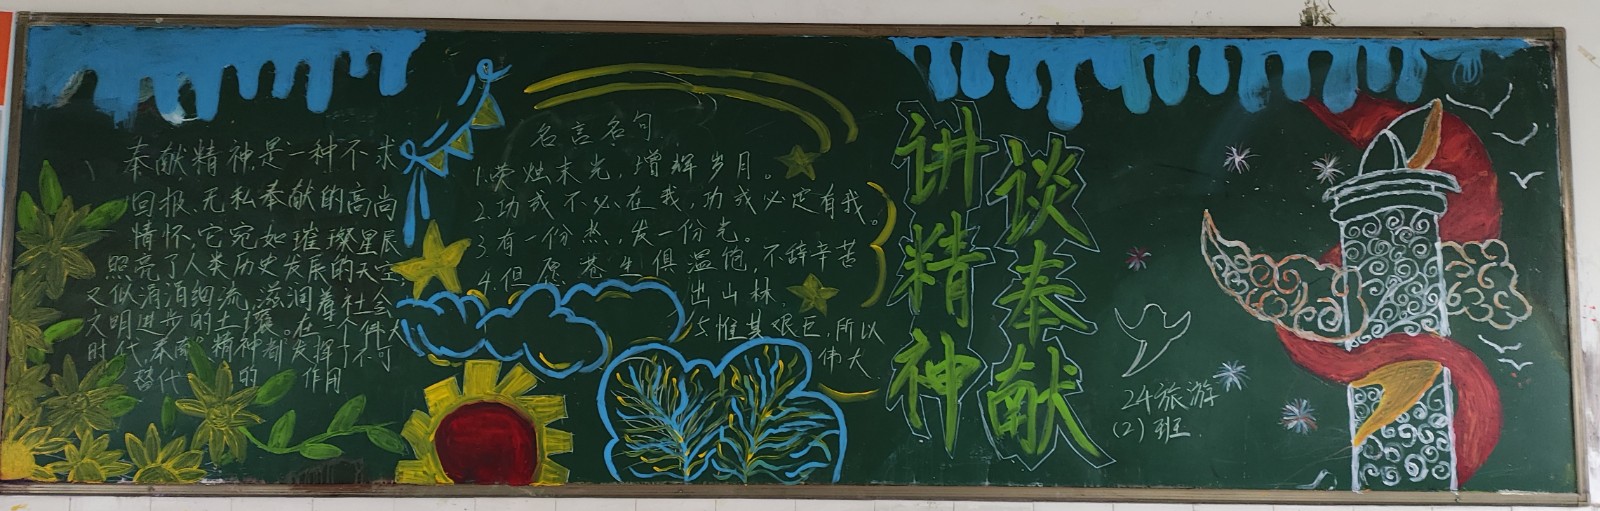 奉献精神是一种不求
回报、无私奉献的高尚
情怀,它宛如璀璨星辰
照亮了人类历史发展的天空,
又似涓涓细流,滋润着社会
文明进步的土壤。在一个伟大
时代,奉献精神都发挥了不可
替代的作用
名言名句
1.荧烛末光,增辉岁月。
2.功成不必在我,功成必定有我。
3.有一份热,发一份光。
4.但愿苍生俱温饱,不辞辛苦
出山林
5惟其艰巨,所以
伟大
讲精神
谈奉献
24旅游
(2)班